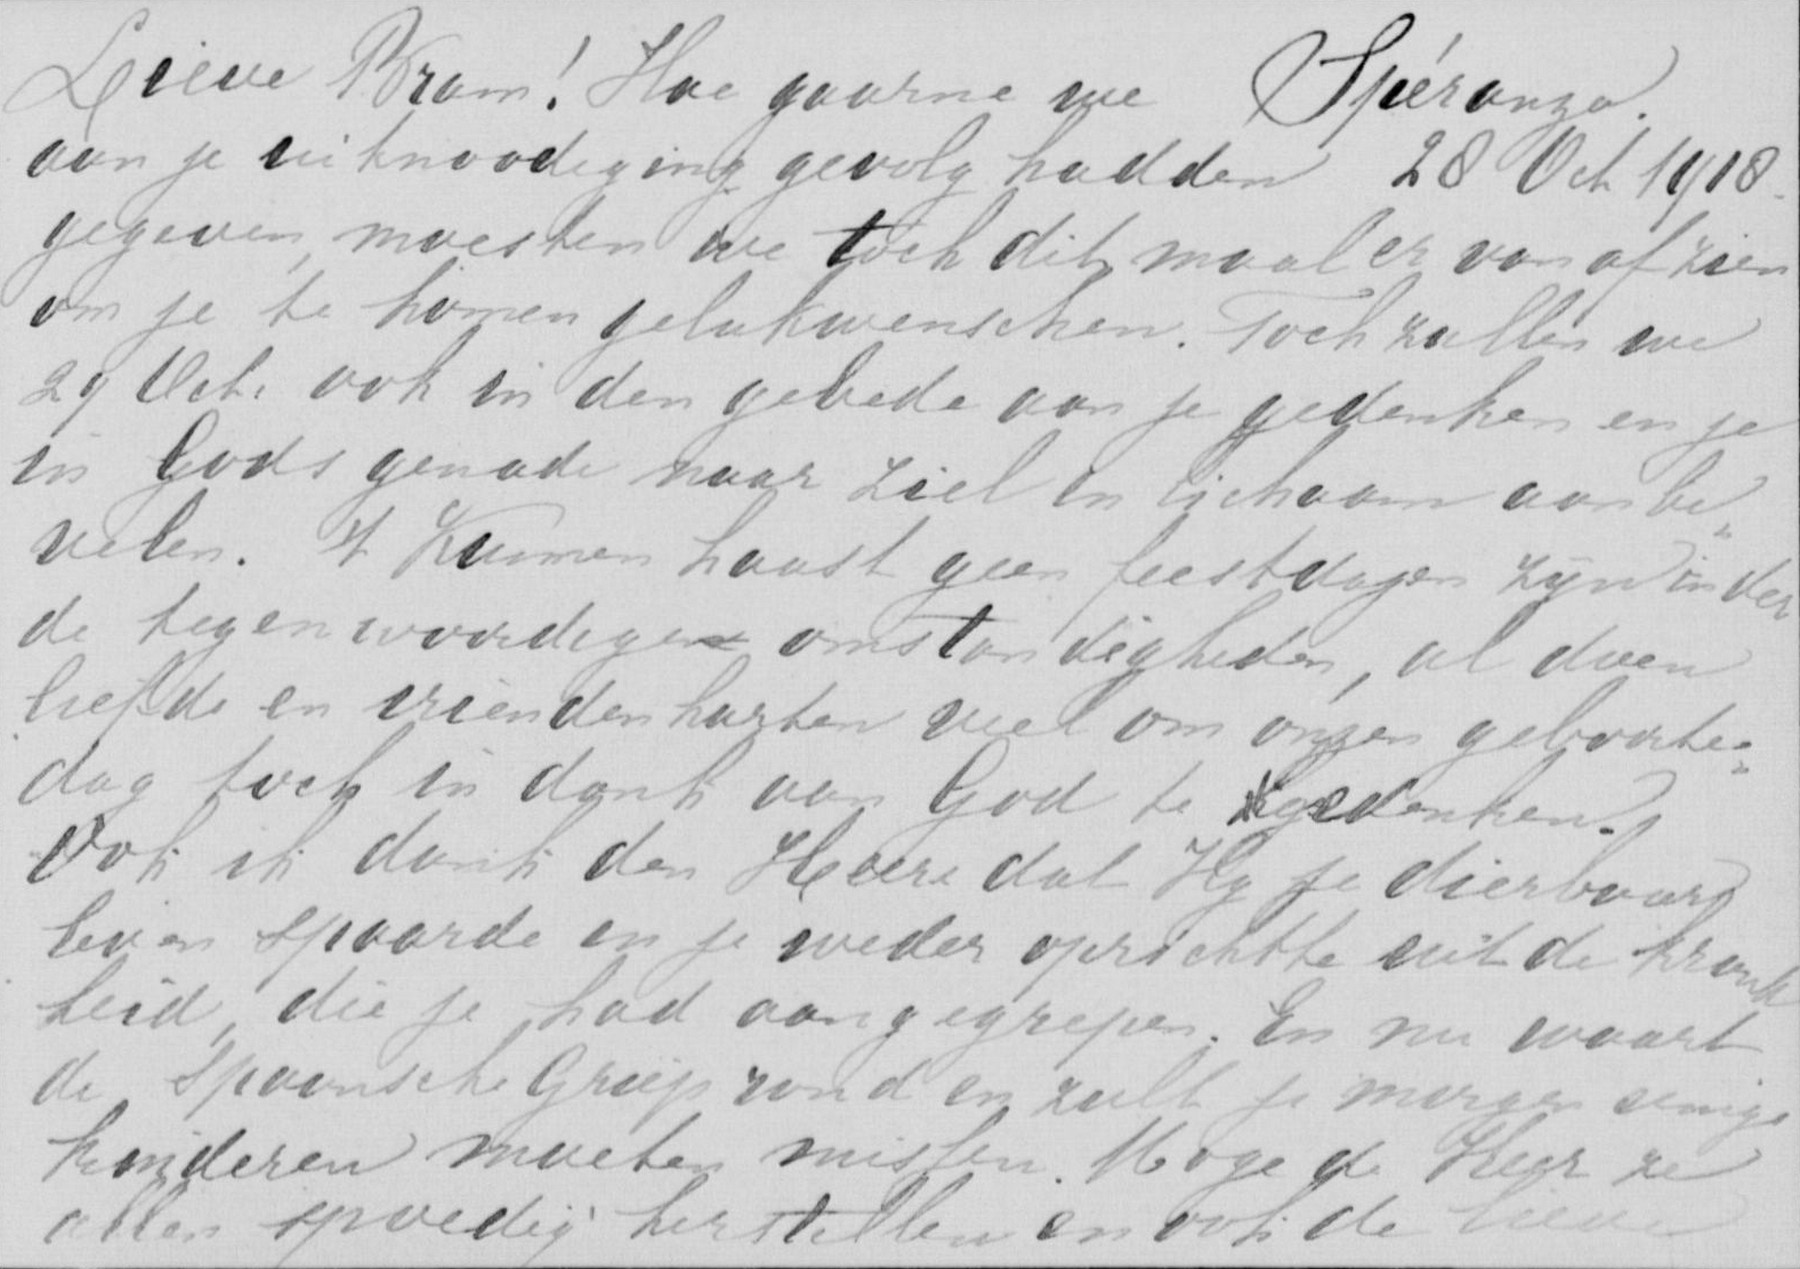 Lieve Bram! Hoe gaarne we Spéranza.
aan je uitnoodiging gevolg hadden 28 Oct 1918.
gegeven, moesten we toch dit maal er van af zien
om je te komen gelukwenschen. Toch zullen we
29 Oct. ook in den gebede aan je gedenken en je
in Gods genade naar ziel en lichaam aanbe„
velen. 't Kunnen haast geen feestdagen zijn in der
de tegenwoordige omstandigheden, al doen
liefde en vriendenharten veel om onzen geboorte„
dag toch in dank aan God te gedenken.
Ook ik dank den Heere dat Hy je dierbaar
leven spaarde en je weder oprichtte uit de krank
heid, die je had aangegrepen. En nu waart
de Spaansche Griep rond en zult je morgen eenige
kinderen moeten missen. Moge de Heer ze
allen spoedig herstellen en ook de lieve